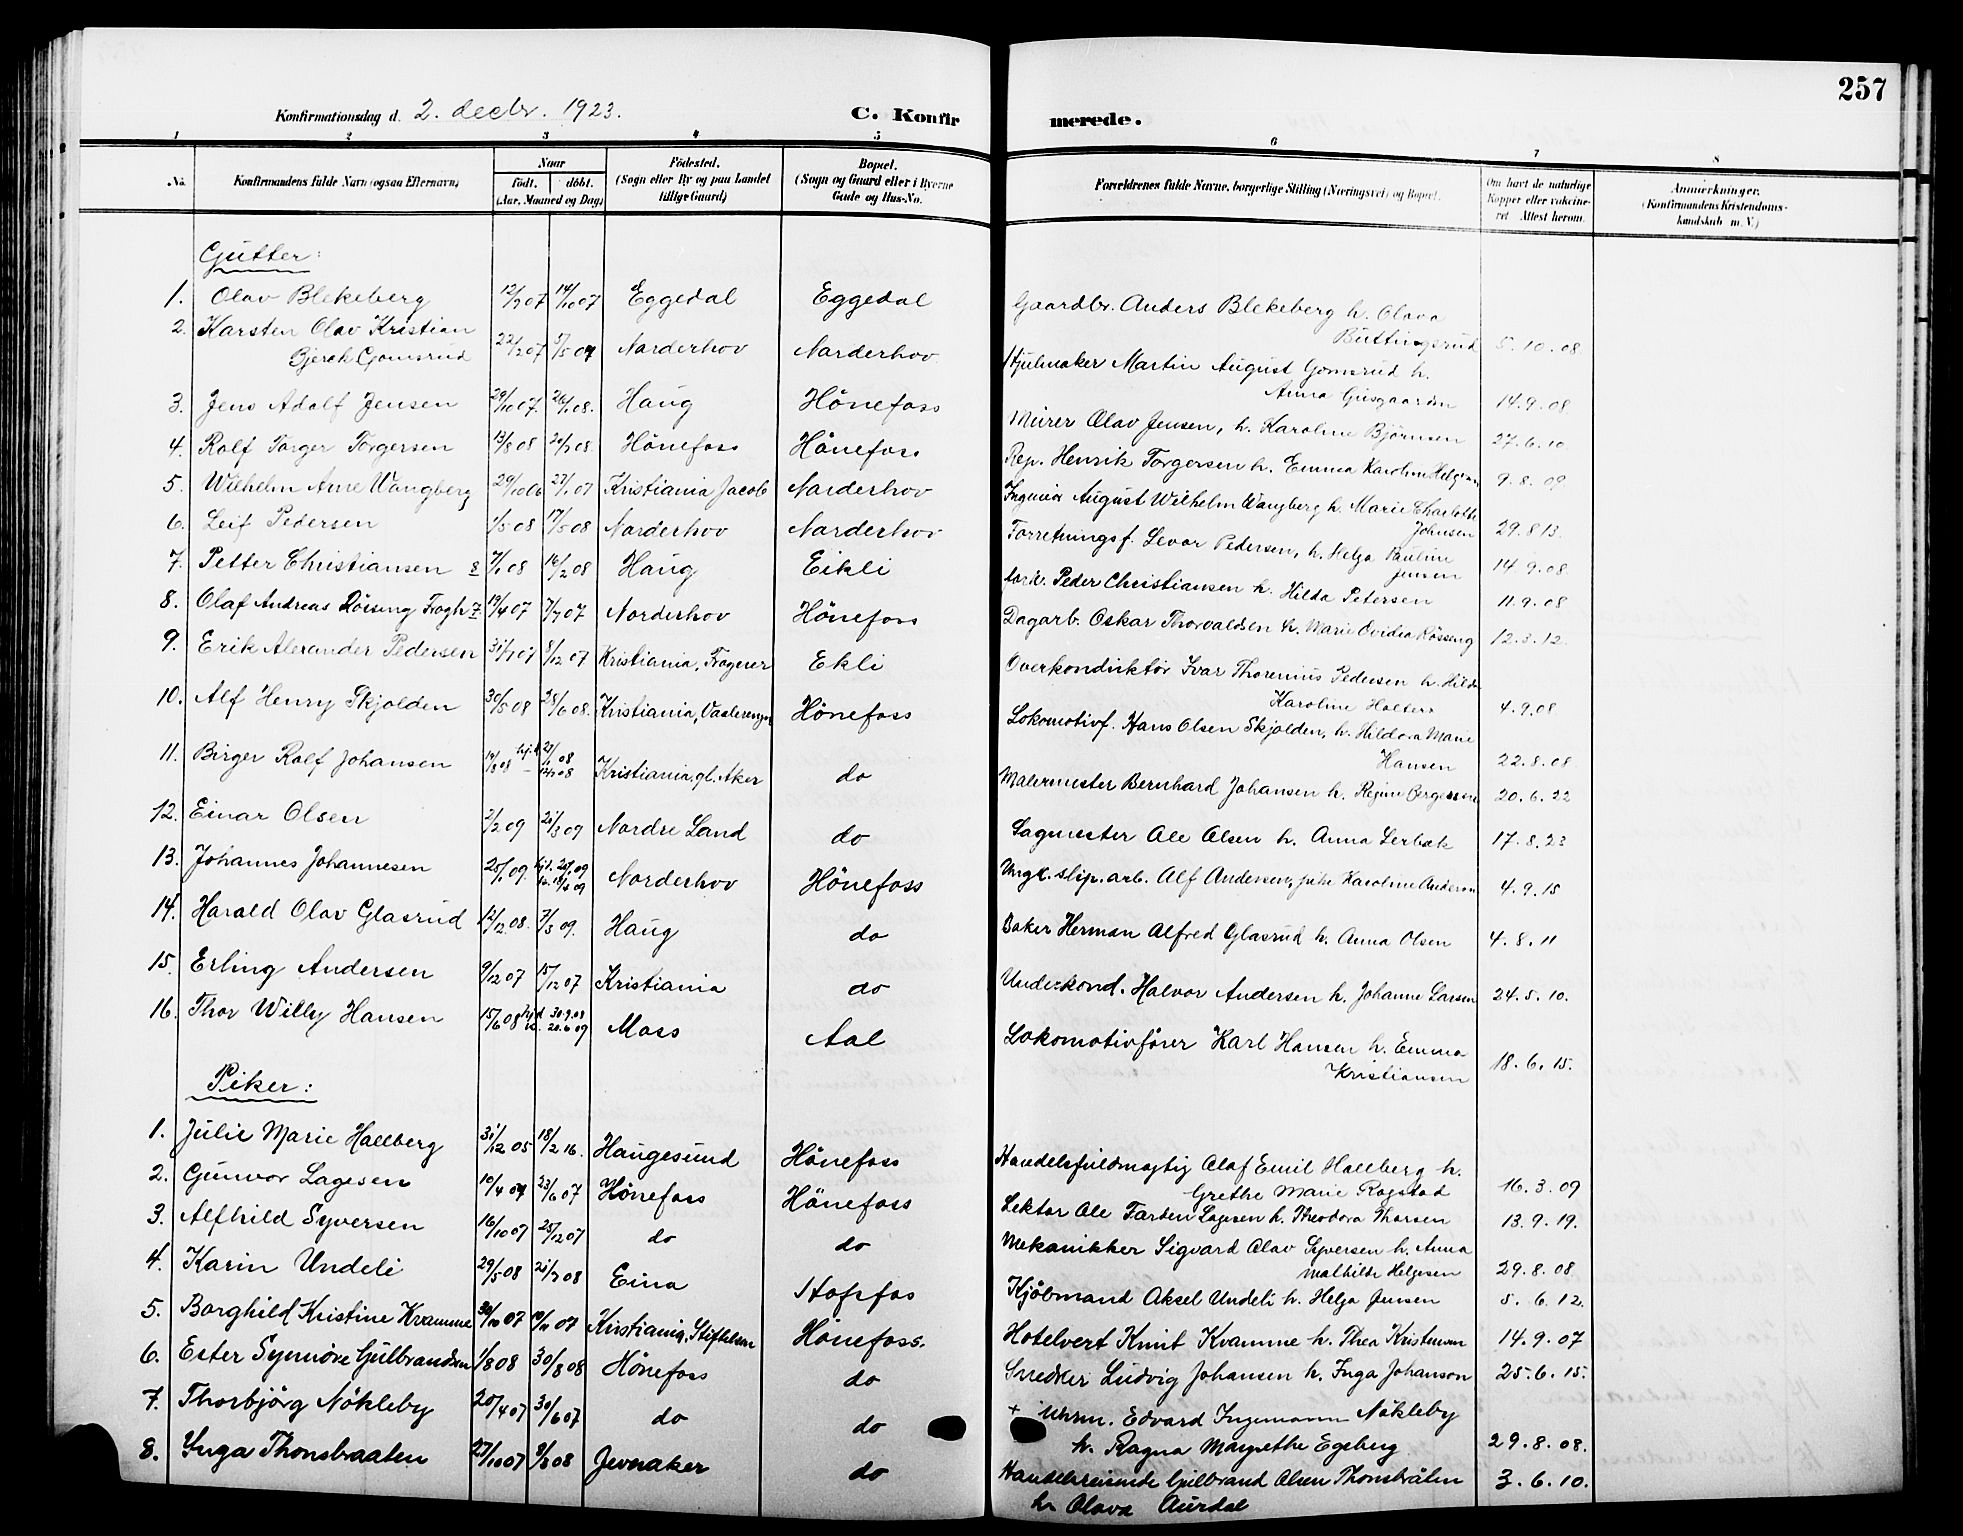 257
Konfirmationsdag d. 2. decbr. 1923.
C. Konfirmerede.
1 2 3 4 5 6 7 8
No. Konfirmandens fulde Navn (ogsaa Efternavn)
Naar
født. døbt.
(Aar, Maaned og Dag)
Fødested.
(Sogn eller By og paa Landet
tillige Gaard)
Bopæl.
(Sogn og Gaard eller i Byerne
Gade og Hus-No.
Forældrenes fulde Navne, borgerlige Stilling (Næringsvei) og Bopæl.
Om havt de naturlige
Kopper eller vakcine-
ret Attest herom.
Anmærkninger.
(Konfirmandens Kristendoms-
kundskab m. V.)
Gutter:
1. Olav Blekeberg 12/9 07 14/10 07 Eggedal Eggedal Gaardbr. Anders Blekeberg h. Olava
Buttingsrud 5.10.08
2. Karsten Olav Kristian
Gjerak Gomsrud 22/2 07 5/5 07 Norderhov Norderhov Hjulmaker Martin August Gomsrud h.
Anna 14.9.08
3. Jens Adolf Jensen 29/10 07. 26/1 08. Haug Hönefoss Murer Olav Jensen, h. Karoline Björnsen 27.6.10
4. Rolf Torger Torgersen 13/8 08 Hönefoss Hönefoss Rep. Henrik Torgersen h. Emma Karoline Helgesen 9.8.09
5. Wilhelm Arne Wangberg 29/10 06 27/1 07 Kristiania Jacob Norderhov Ingeniør August Wilhelm Wangberg h. Marie Charlotte
Johnsen 29.8.13.
6. Leif Pedersen 1/5 08 17/5 08 Norderhov Norderhov Forretningsf. Levor Pedersen, h. Helga Pauline
Jensen 14.9.08
7. Petter Christiansen 8 7/1 08 16/2 08 Haug Eikli Peder Christiansen h. Hilda Petersen 11.9.08
8. Olaf Andreas Rösseng 7 19/4 07 7/7 07 Norderhov Hönefoss Dagarb. Oskar Thorvaldsen h. Marie Ovidia Rösseng 12.3.12.
9. Erik Alexander Pedersen 31/7 07 8/12 07 Kristiania, Frogner Ekli Overkonduktør Ivar Thorenius Pedersen h. Hilda
Karoline Holters 4.9.08
10. Alf Henry Skjolden 30/5 08 28/6 08. Kristiania, Vaalerengen Hönefoss Lokomotivf. Hans Olsen Skjolden, h. Hildora Marie
Hansen 22.8.08
11. Birger Rolf Johansen Kristiania, gl. Aker do Malermester Bernhard Johansen h. Regine Børgesen 20.6.22
12. Einar Olsen 2/2 09 21/3 09 Nordre Land do Sagmester Ole Olsen h. Anna Lerbæk 17.8.23
13. Johannes Johannesen 25/1 09. Norderhov Hönefoss Ungk. slip.arb. Alf Andersen, pike Karoline Anderson 4.9.15
14. Harald Olav Glasrud 12/12 08. 7/3 09. Haug do Baker Herman Alfred Glasrud h. Anna Olsen 4.8.11
15. Erling Andersen 9/12 07 15/12 07 Kristiania do Underkond. Halvor Andersen h. Johanne Larsen 24.5.10.
16. Thor Willy Hansen 15/6 08 hjd 30.9.08
20.6.09 Moss Aal Lokomotivfører Karl Hansen h. Emma
Kristiansen 18.6.15.
Piker:
1. Julie Marie Hallberg 31/12 05 18/2 16. Haugesund Hönefoss Handelsfuldmægtig Olaf Emil Hallberg h.
Grethe Marie Rogstad 16.3.09
2. Gunvor Lagesen 10/4 07 23/6 07 Hönefoss Hönefoss Lektor Ole Torben Lagesen h. Theodora Thorsen 13.9.19.
3. Alfhild Syversen 16/10 07 25/12 07 do do Mekanikker Sigvard Olav Syversen h. Anna
Mathilde Helgesen 29.8.08
4. Karin Undeli 29/5 08 21/7 08 Eina Hofsfos Kjöbmand Aksel Undeli h. Helga Jensen 5.6.12.
5. Borghild Kristine Kvamme 30/10 07 Kristiania, Stiftelsen Hönefoss. Hotelvert Knut Kvamme h. Thea Kristensen 14.9.07
6. Ester Synnöve Gulbrandsen 1/8 08 30/8 08 Hönefoss do Snedker Ludvig Johansen h. Inga Johanson 25.6.15.
7. Thorbjörg Nökleby 20/4 07 30/6 07 do do + Uhrm. Edvard Ingemann Nökleby
h. Ragna Margrethe Egeberg 29.8.08.
8. Inga Thonsbraaten 27/10 07 Jevnaker do Handelsreisende Gulbrand Olsen Thonsbråten
h. Olava Aurdal 3.6.10.